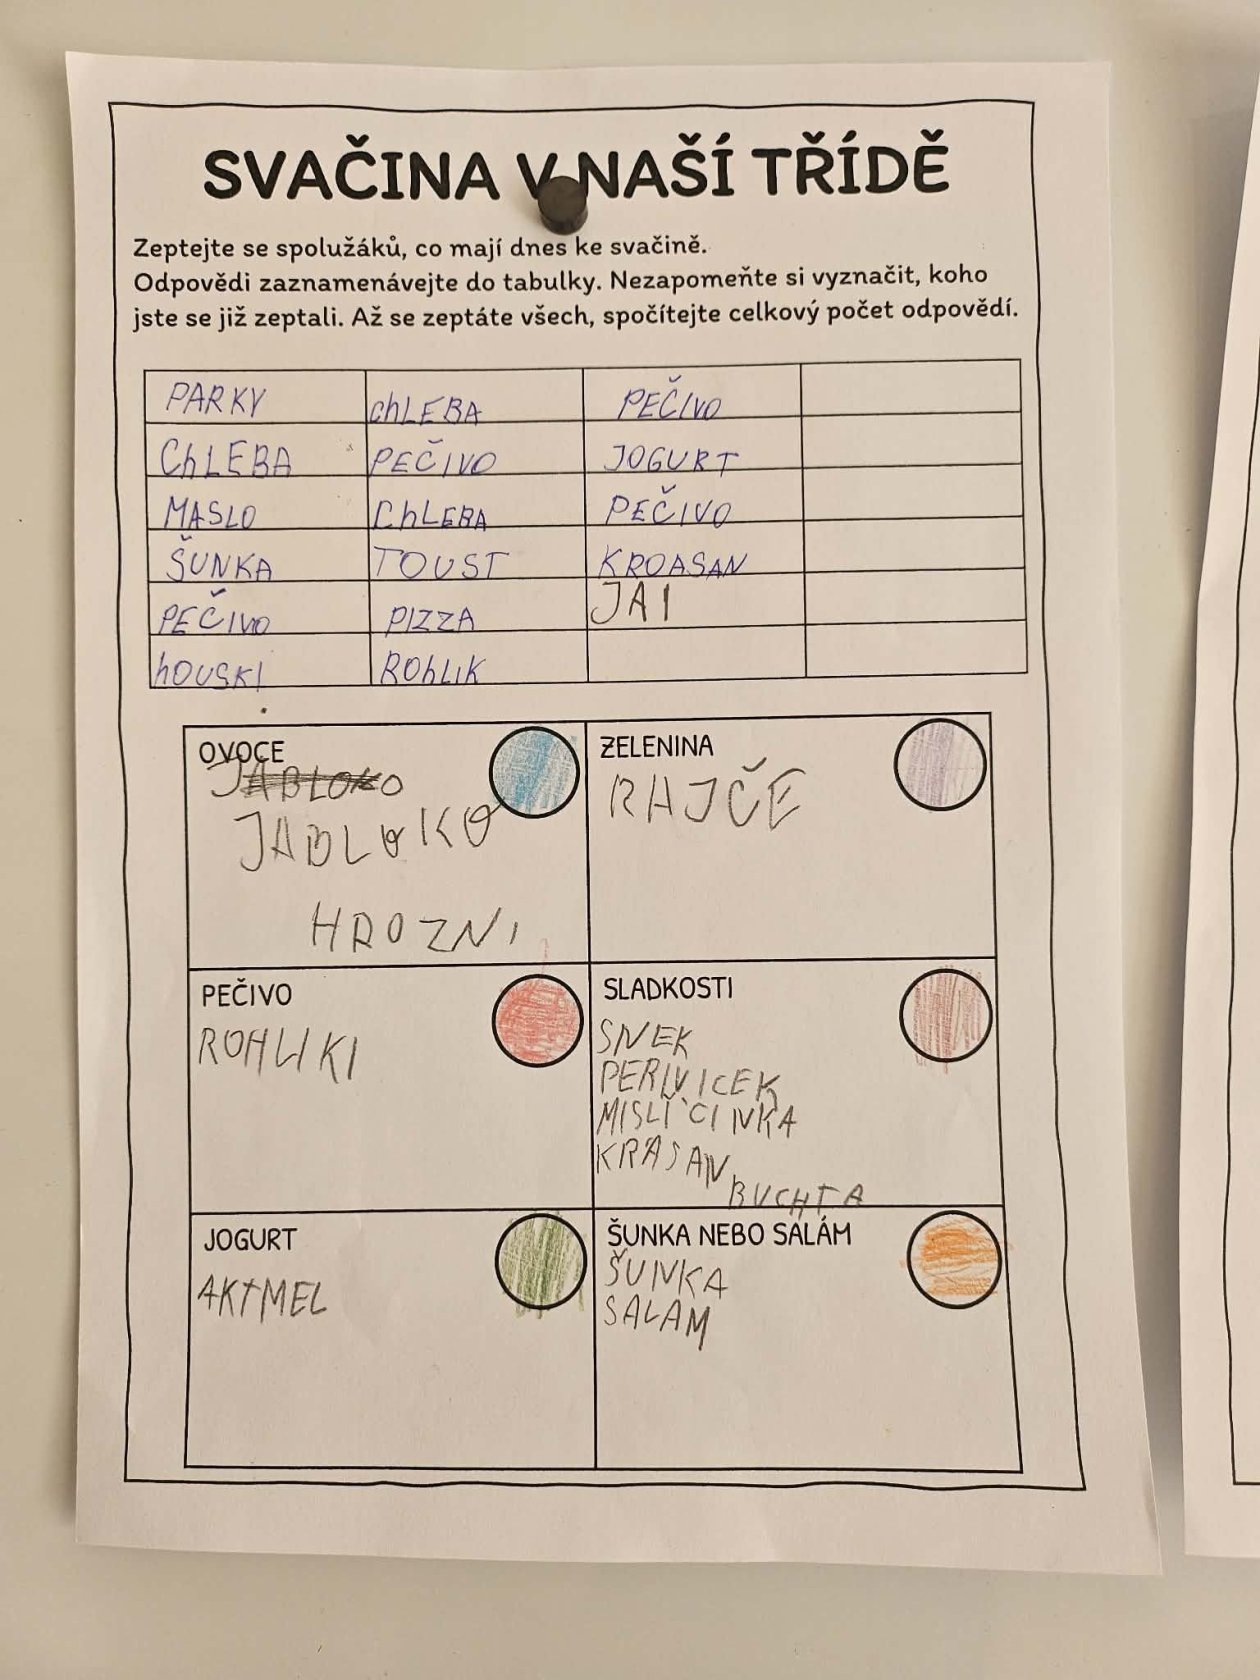 SVAČINA V NAŠÍ TŘÍDĚ
Zeptejte se spolužáků, co mají dnes ke svačině.
Odpovědi zaznamenávejte do tabulky. Nezapomeňte si vyznačit, koho
jste se již zeptali. Až se zeptáte všech, spočítejte celkový počet odpovědí.
PARKY ChLEBA PEČIVO
ChLEBA PEČIVO JOGURT
MASLO ChLEBA PEČIVO
ŠUNKA TOUST KROASAN
PEČIVO PIZZA JAI
hOUSKI ROhLIK
OVOCE
JABLOKO
JABLOKO
HROZNI
ZELENINA
RAJČE
PEČIVO
ROHLIKI
SLADKOSTI
SNEK
PERNICEK
MISLI CINKA
KRASAN
BUCHTA
JOGURT
AKTMEL
ŠUNKA NEBO SALÁM
ŠUNKA
SALAM